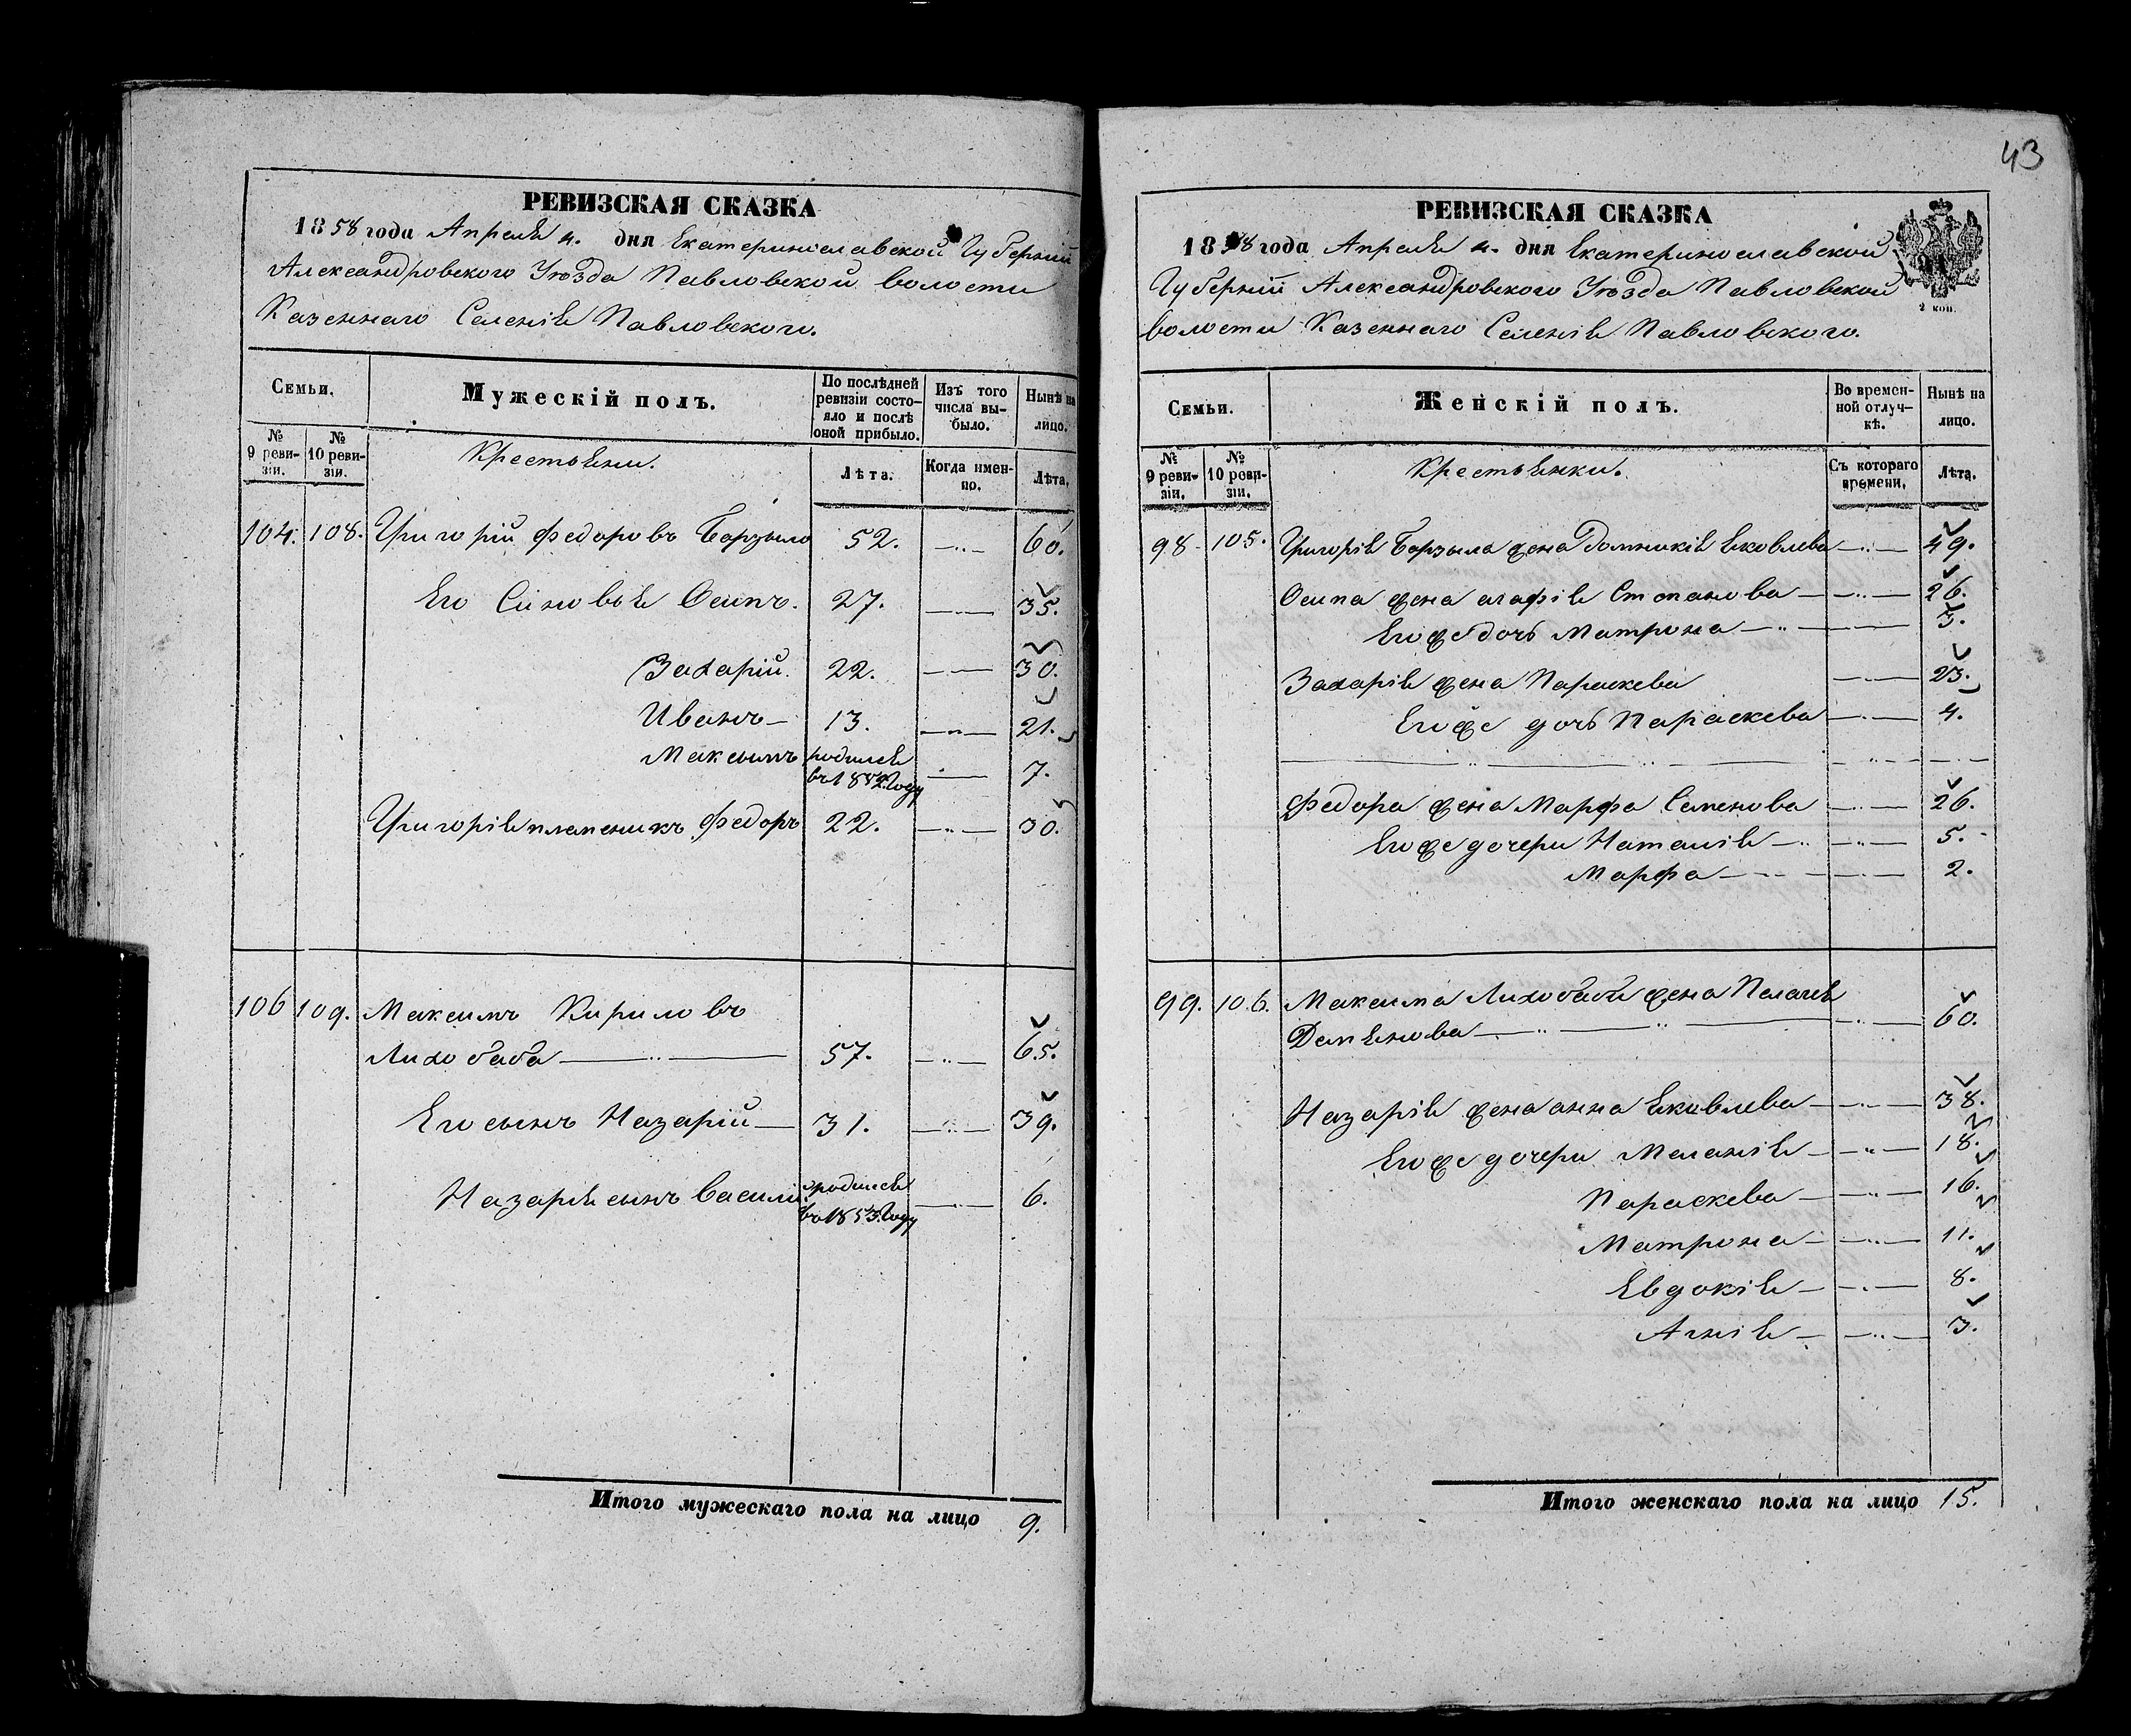 РЕВИЗСКАЯ СКАЗКА
1858 года Апреля 4. дня Екатеринославской Губерніи
Александровского Уѣзда Павловской волости
Казеннаго Селенія Павловского.
Семьи.
Мужескій полъ.
По послѣдней ревизіи состояло и послѣ оной прибыло.
Изъ того числа выбыло.
Нынѣ на лицо.
№ 9 ревизіи.
№ 10 ревизіи.
Крестьяни.
Лѣта.
Когда именно.
Лѣта.
104. 108. Григорій Федоровъ Барзыло 52. 60.
Его Сыновья Осипъ. 27. 35.
Захарій. 22. 30.
Иванъ 13. 21.
Максымъ родился въ 1852 году 7.
Григорія племеникъ Федоръ 22. 30.
106 109. Максимъ Кириловъ
Лихобаба 57. 65.
Его сынъ Назарій 31. 39.
Назарія сынъ Василій родился въ 1853 году 6.
Итого мужескаго пола на лицо 9.
43
РЕВИЗСКАЯ СКАЗКА
1858 года Апреля 4. дня Екатеринославской
Губерніи Александровского Уѣзда Павловской
волости Казеннаго Селенія Павловского.
2 коп.
Семьи.
Женскій полъ.
Во временной отлучкѣ.
Нынѣ на лицо.
№ 9 ревизіи.
№ 10 ревизіи.
Крестьянки.
Съ котораго времени.
Лѣта.
98. 105. Григорія Барзыла жена Домникія Яковлева 49.
Осипа жена агафія Степанова 26.
Егоже дочь Матрона 3.
Захарія жена Параскева 23.
Егоже дочь Параскева 4.
Федора жена Марфа Семенова 26.
Егоже дочери Наталія 5.
Марфа 2.
99. 106. Максима Лихобабы жена Пелагея
Демянова 60.
Назарія жена анна Яковлева 38.
Егоже дочери Меланія 18.
Параскева 16.
Матрона 11.
Евдокія 8.
Агнія 3.
Итого женскаго пола на лицо 15.